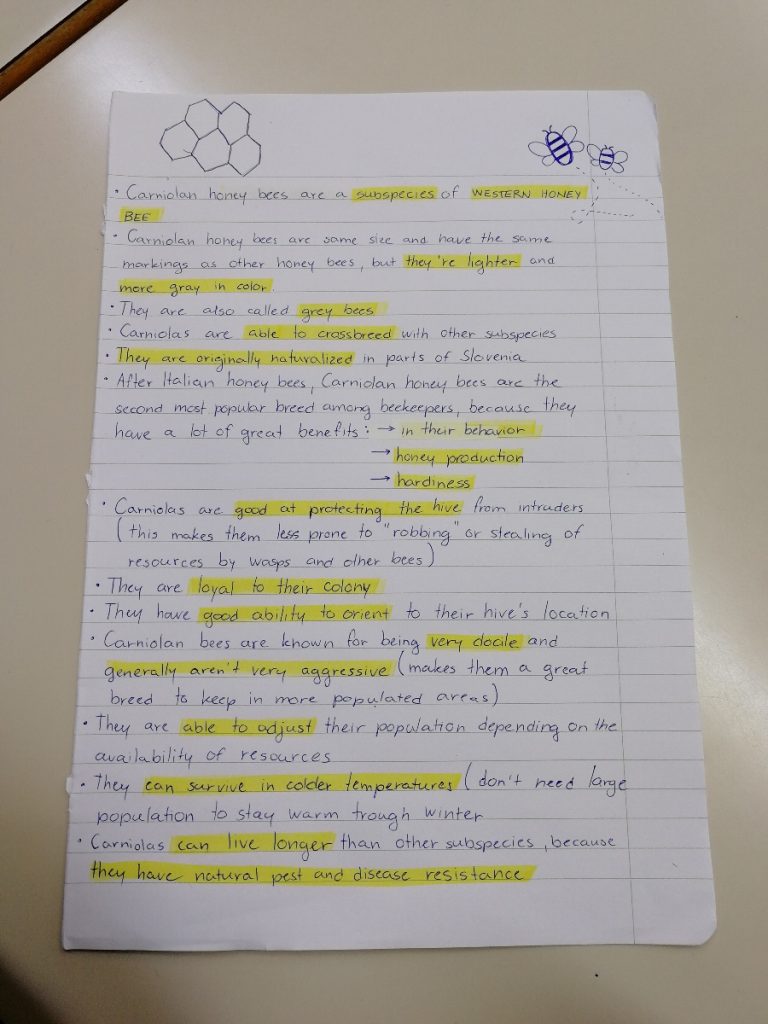 • Carniolan honey bees are a subspecies of WESTERN HONEY
BEE
• Carniolan honey bees are same size and have the same
markings as other honey bees, but they're lighter and
more gray in color.
• They are also called grey bees
• Carniolas are able to crossbreed with other subspecies
• They are originally naturalized in parts of Slovenia
• After Italian honey bees, Carniolan honey bees are the
second most popular breed among beekeepers, because they
have a lot of great benefits: → in their behavior
→ honey production
→ hardiness
• Carniolas are good at protecting the hive from intruders
(this makes them less prone to "robbing" or stealing of
resources by wasps and other bees)
• They are loyal to their colony
• They have good ability to orient to their hive's location
• Carniolan bees are known for being very docile and
generally aren't very aggressive (makes them a great
breed to keep in more populated areas)
• They are able to adjust their population depending on the
availability of resources
• They can survive in colder temperatures (don't need large
population to stay warm trough winter
• Carniolas can live longer than other subspecies, because
they have natural pest and disease resistance